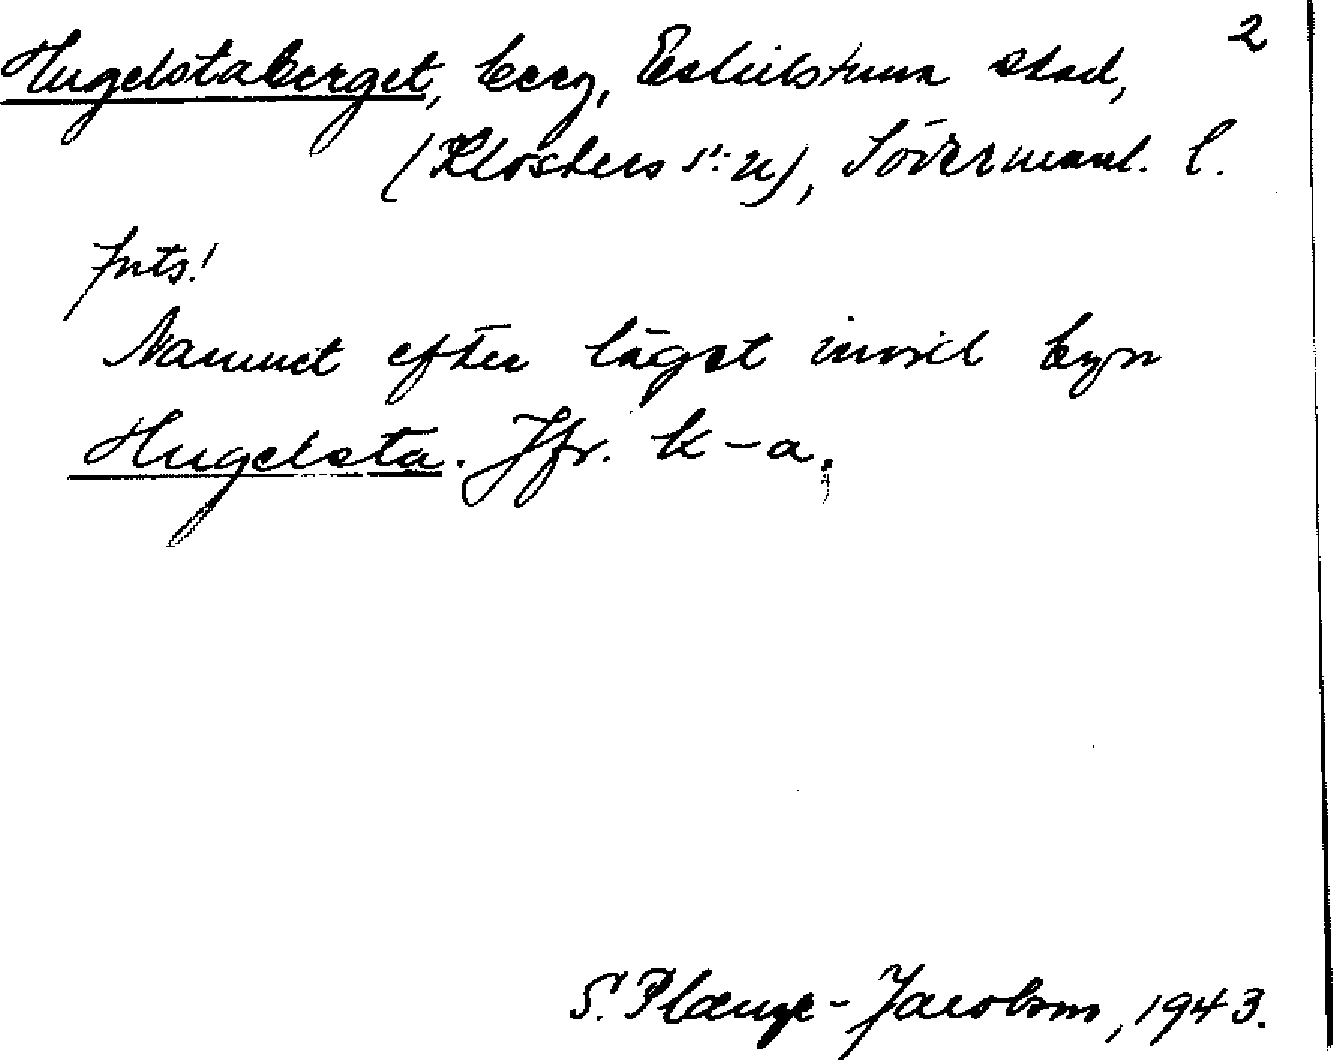 2
Hugelstaberget, berg, Eskilstuna stad,
(Klosters s:n), Södermanl. l.
Jnts!
Namnet efter läget invid byn
Hugelsta. Jfr. k-a.
S. Plænge-Jacobson, 1943.